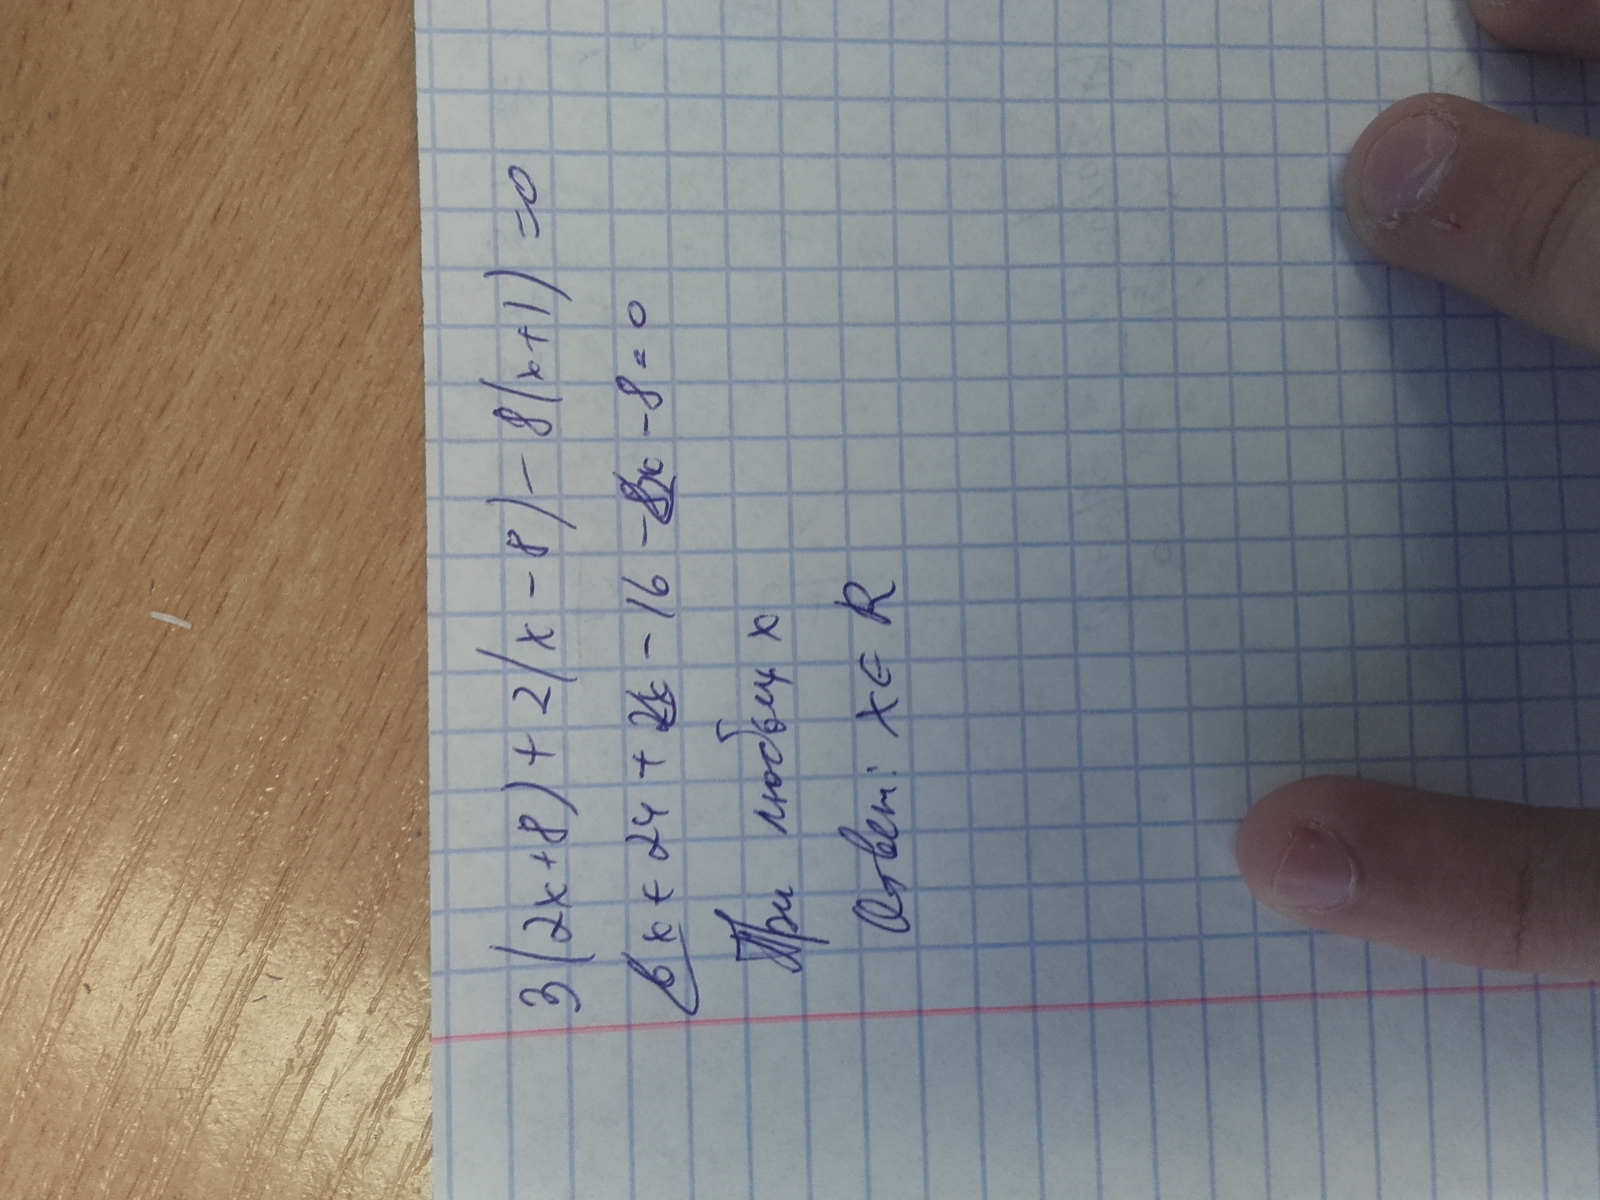 3(2x+8)+2(x-8)-8(x+1)=0
6x+24+2x-16-8x-8=0
При любых x
Ответ: x∈R